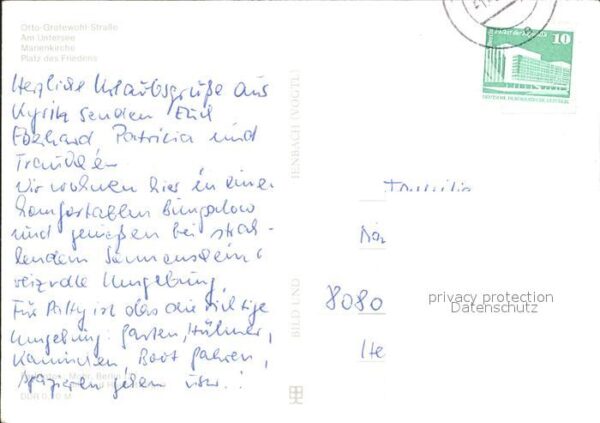 Otto-Grotewohl-Straße
Am Untersee
Marienkirche
Platz des Friedens
Herzliche Urlaubsgrüße aus
Kyritz senden Euch
Eberhard, Patricia und
Traudel
Wir wohnen hier in einem
komfortablen Bungalow
und genießen bei strah-
lendem Sonnenschein
reizvolle Umgebung.
Für Patty ist das die richtige
Umgebung: Garten, Hühner,
Kaninchen, Boot fahren,
spazieren gehen usw.!
DDR
BILD UND
IENBACH (VOGTL)
10
Familie
8080
He
privacy protection
Datenschutz